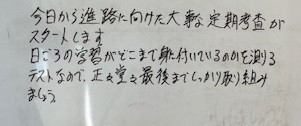 今日から進路に向けた大事な定期考査が
スタートします
日ごろの学習がどこまで身に付いているのかを測る
テストなので、正々堂々最後までしっかり取り組み
ましょう